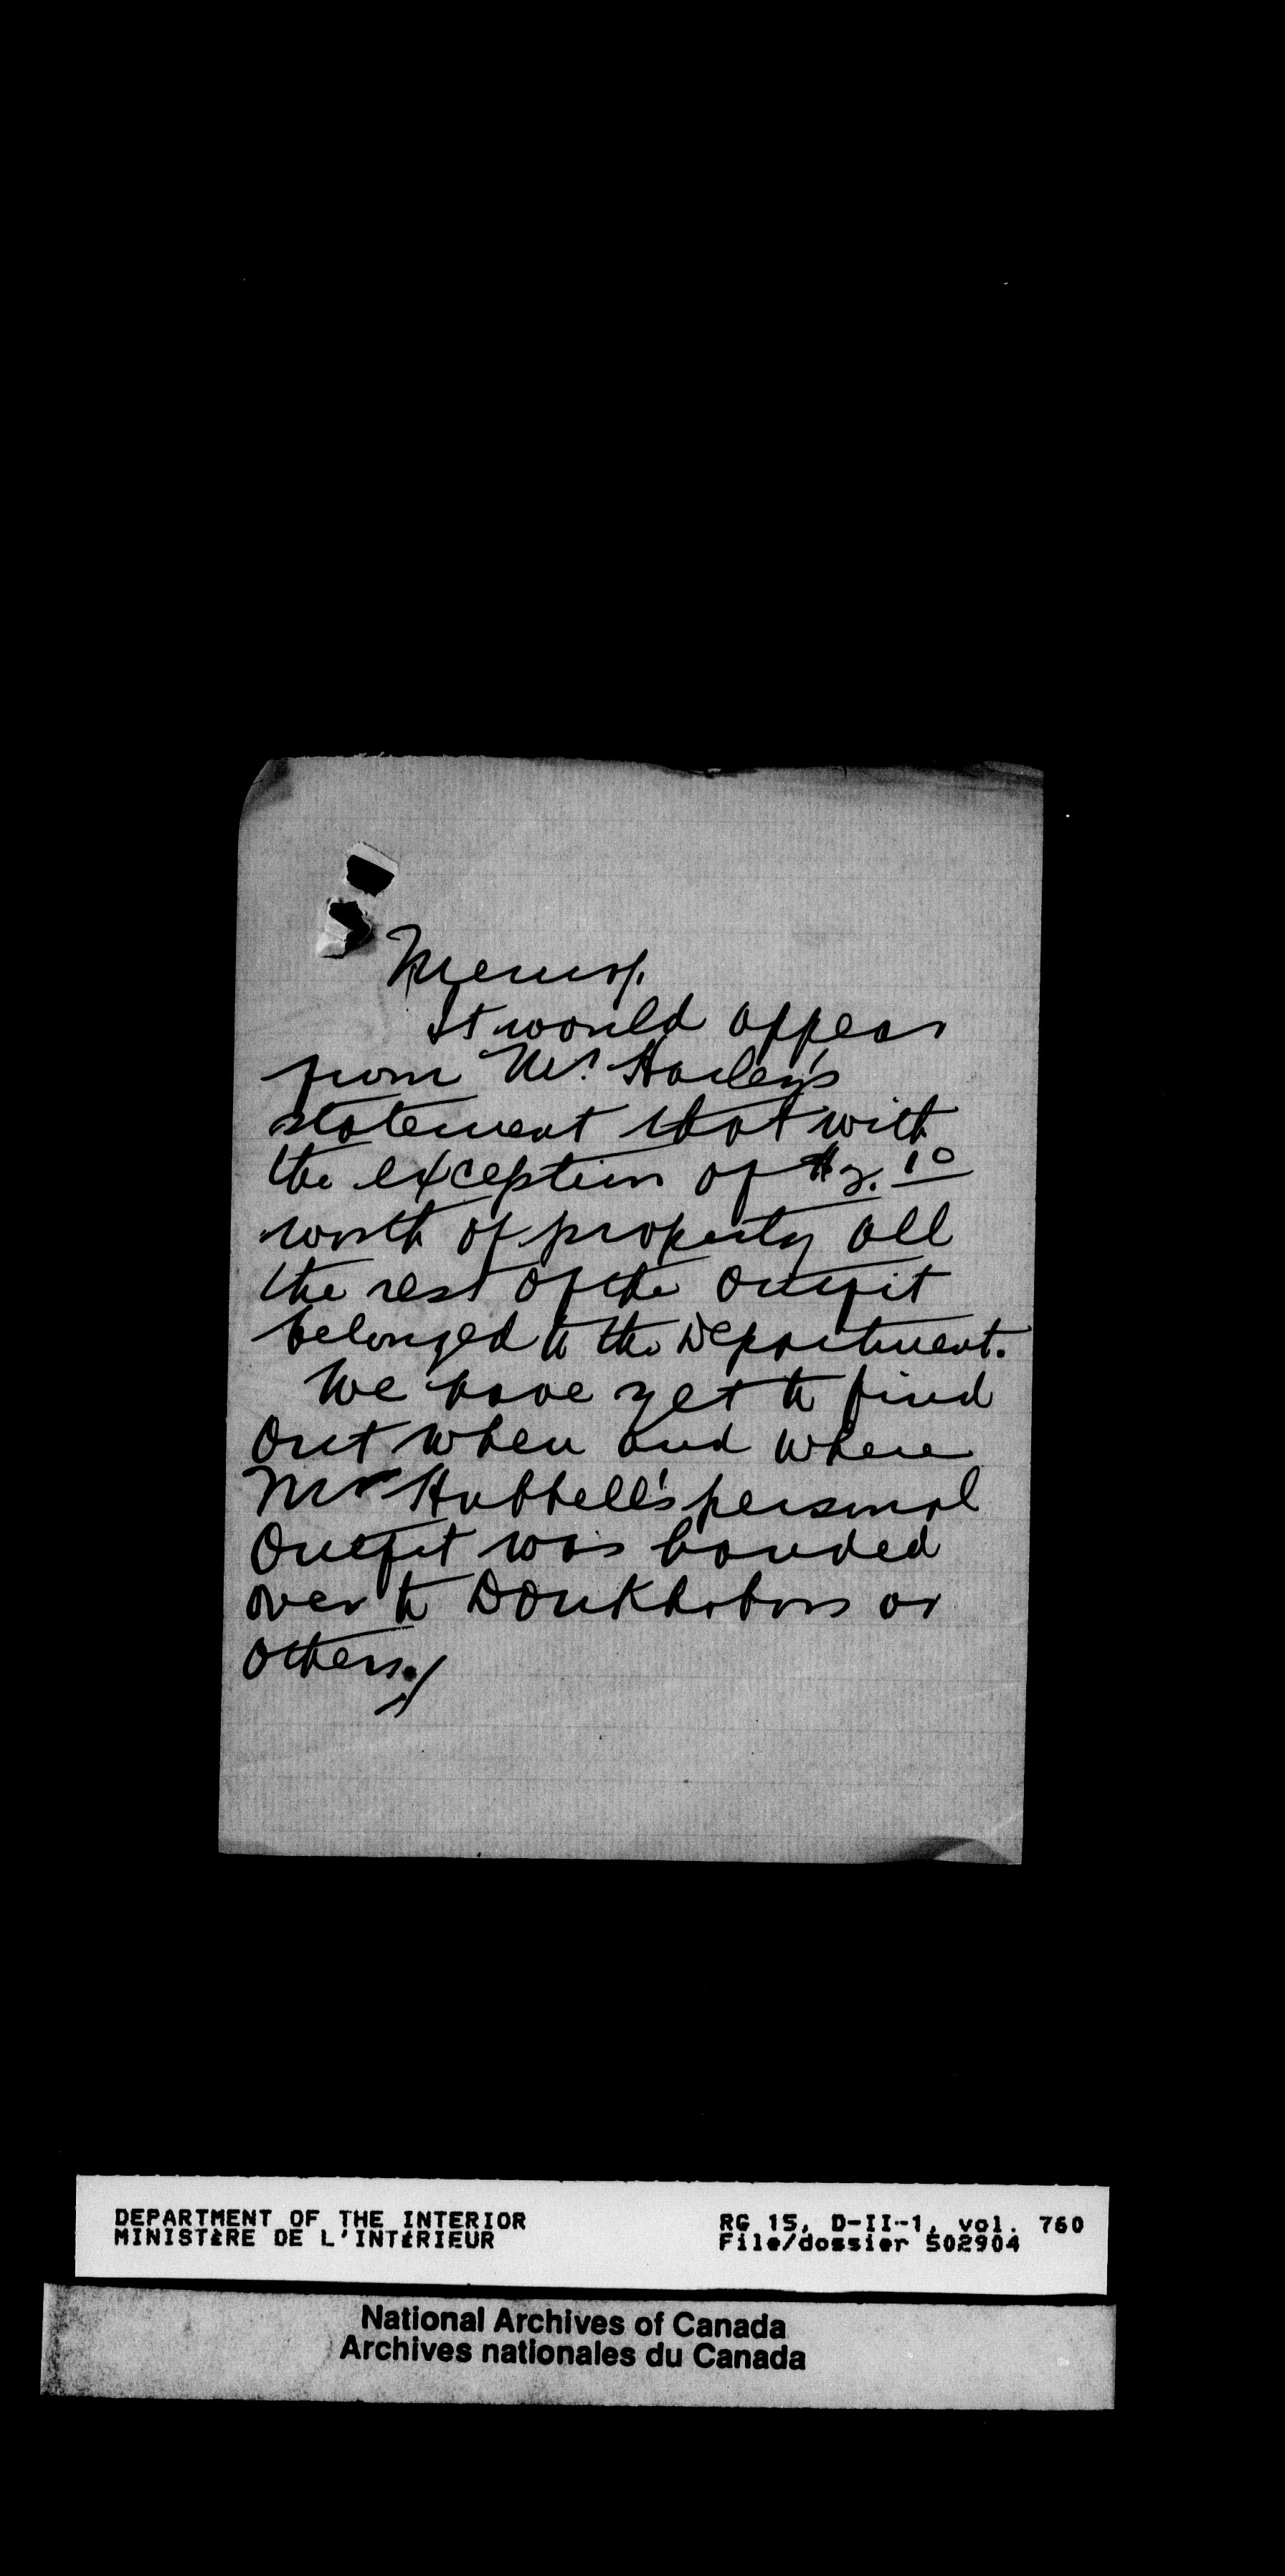 Memo/.
It would appear
from Mr. Harley's
statement that with
the exception of $3.10
worth of property all
the rest of the outfit
belonged to the Department.
We have yet to find
out when and where
Mr Hubbell's personal
Outfit was handed
over to Doukhobors or
others./
DEPARTMENT OF THE INTERIOR
MINISTÈRE DE L'INTÉRIEUR
RG 15, D-II-1, vol. 760
File/dossier 502904
National Archives of Canada
Archives nationales du Canada